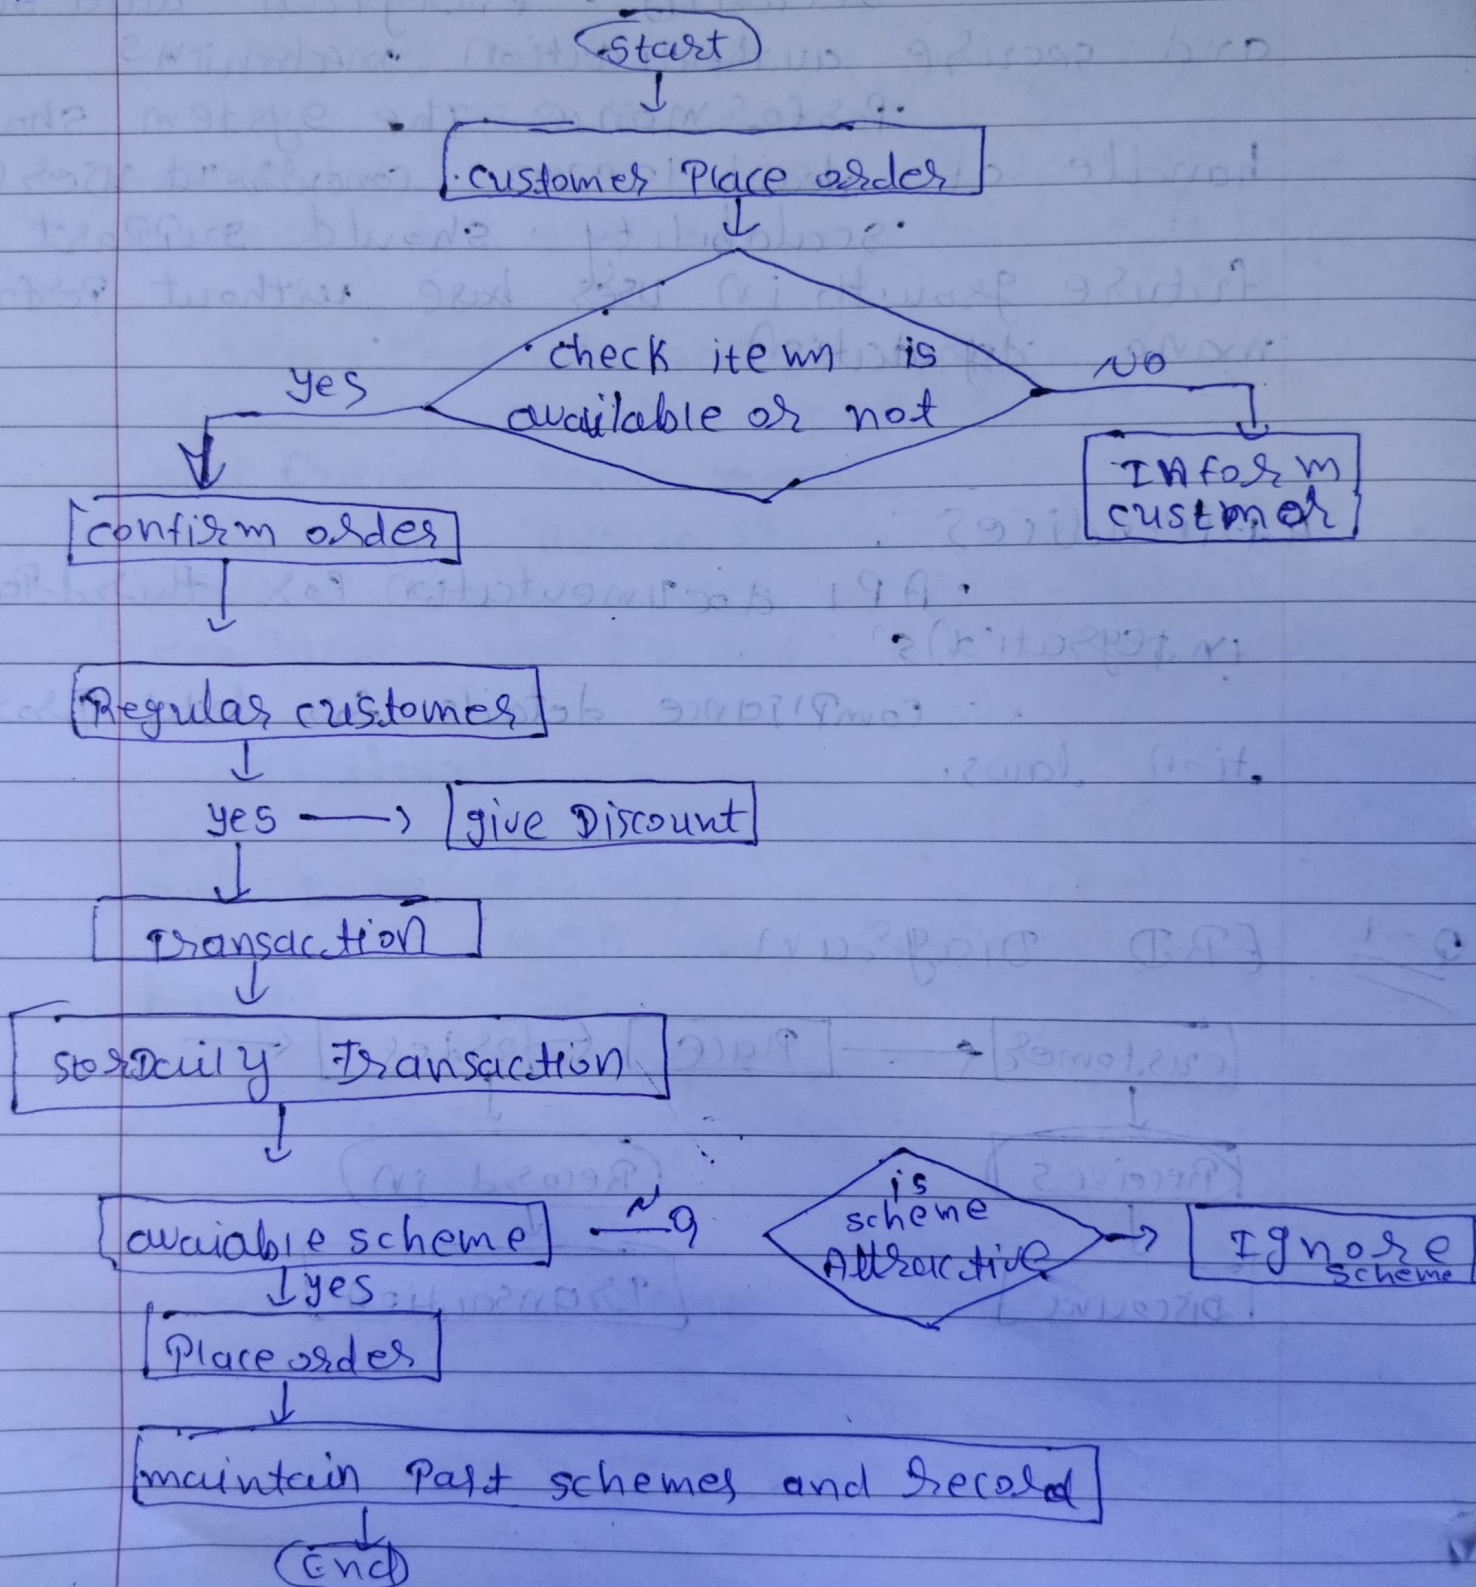 Start
customer Place order
check item is
available or not
yes
NO
Inform
custmor
confirm order
Regular customer
yes
give Discount
Transaction
StorDaily Transaction
avaiable scheme
No
is
scheme
Attractive
Ignore
scheme
yes
Place order
maintain Past schemes and record
End